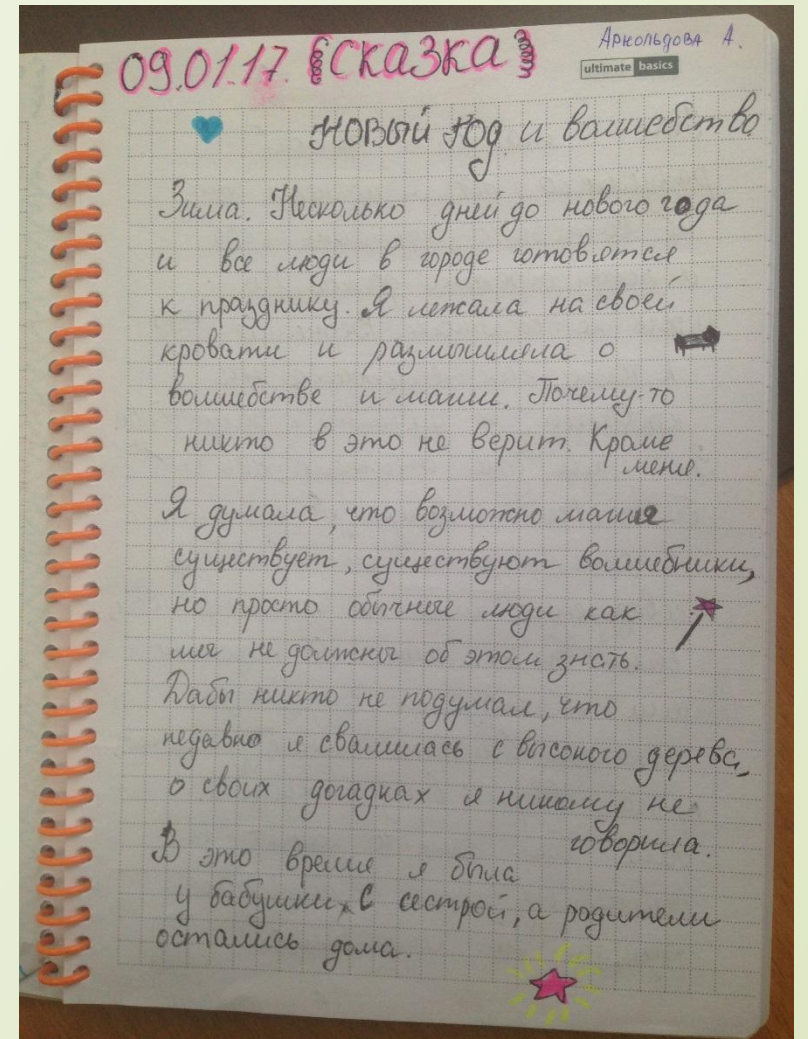 Арнольдова А.
09.01.17. {Сказка}
ultimate basics
Новый Год и волшебство
Зима. Несколько дней до нового года
и все люди в городе готовятся
к празднику. Я лежала на своей
кровати и размышляла о
волшебстве и магии. Почему-то
никто в это не верит. Кроме
меня.
Я думала, что возможно магия
существует, существуют волшебники,
но просто обычные люди как
мы не должны об этом знать.
Дабы никто не подумал, что
недавно я свалилась с высокого дерева,
о своих догадках я никому не
говорила.
В это время я была
у бабушки с сестрой, а родители
остались дома.